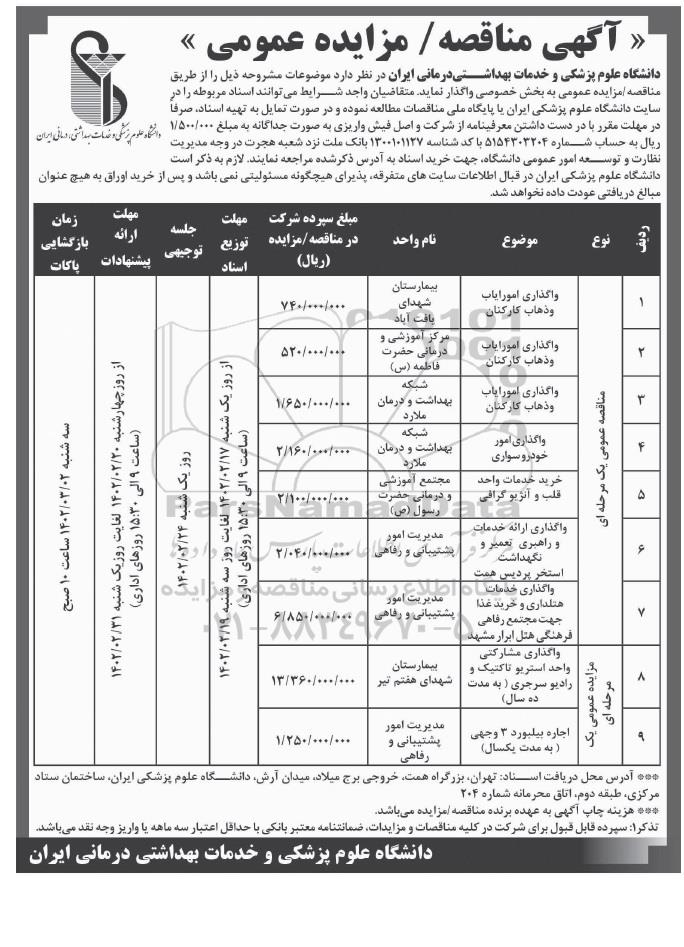 « آگهی مناقصه/ مزایده عمومی »
دانشگاه علوم پزشکی و خدمات بهداشتی، درمانی ایران
دانشگاه علوم پزشکی و خدمات بهداشتی‌درمانی ایران در نظر دارد موضوعات مشروحه ذیل را از طریق
مناقصه/مزایده عمومی به بخش خصوصی واگذار نماید. متقاضیان واجد شرایط می‌توانند اسناد مربوطه را در
سایت دانشگاه علوم پزشکی ایران یا پایگاه ملی مناقصات مطالعه نموده و در صورت تمایل به تهیه اسناد، صرفاً
در مهلت مقرر با در دست داشتن معرفینامه از شرکت و اصل فیش واریزی به صورت جداگانه به مبلغ ۱/۵۰۰/۰۰۰
ریال به حساب شماره ۵۱۵۴۳۰۳۲۰۴ با کد شناسه ۱۳۰۰۱۰۱۱۲۷ بانک ملت نزد شعبه هجرت در وجه مدیریت
نظارت و توسعه امور عمومی دانشگاه، جهت خرید اسناد به آدرس ذکرشده مراجعه نمایند. لازم به ذکر است
دانشگاه علوم پزشکی ایران در قبال اطلاعات سایت های متفرقه، پذیرای هیچگونه مسئولیتی نمی باشد و پس از خرید اوراق به هیچ عنوان
مبالغ دریافتی عودت داده نخواهد شد.
ردیف
نوع
موضوع
نام واحد
مبلغ سپرده شرکت
در مناقصه/مزایده
(ریال)
مهلت
توزیع
اسناد
جلسه
توجیهی
مهلت
ارائه
پیشنهادات
زمان
بازگشایی
پاکات
۱
واگذاری امورایاب
وذهاب کارکنان
بیمارستان
شهدای
یافت آباد
۷۴۰/۰۰۰/۰۰۰
۲
واگذاری امورایاب
وذهاب کارکنان
مرکز آموزشی و
درمانی حضرت
فاطمه (س)
۵۲۰/۰۰۰/۰۰۰
۳
واگذاری امورایاب
وذهاب کارکنان
شبکه
بهداشت و درمان
ملارد
۱/۶۵۰/۰۰۰/۰۰۰
۴
واگذاری امور
خودروسواری
شبکه
بهداشت و درمان
ملارد
۲/۱۶۰/۰۰۰/۰۰۰
۵
خرید خدمات واحد
قلب و آنژیو گرافی
مجتمع آموزشی
و درمانی حضرت
رسول (ص)
۲/۱۰۰/۰۰۰/۰۰۰
۶
واگذاری ارائه خدمات
و راهبری تعمیر و
نگهداشت
استخر پردیس همت
مدیریت امور
پشتیبانی و رفاهی
۲/۰۴۰/۰۰۰/۰۰۰
۷
واگذاری خدمات
هتلداری و خرید غذا
جهت مجتمع رفاهی
فرهنگی هتل ابرار مشهد
مدیریت امور
پشتیبانی و رفاهی
۶/۸۵۰/۰۰۰/۰۰۰
۸
واگذاری مشارکتی
واحد استریو تاکتیک و
رادیو سرجری ( به مدت
ده سال)
بیمارستان
شهدای هفتم تیر
۱۳/۳۶۰/۰۰۰/۰۰۰
۹
اجاره بیلبورد ۳ وجهی
( به مدت یکسال)
مدیریت امور
پشتیبانی و
رفاهی
۱/۲۵۰/۰۰۰/۰۰۰
مناقصه عمومی یک مرحله ای
مزایده عمومی یک
مرحله ای
از روز یک شنبه ۱۴۰۲/۰۲/۱۷ لغایت روز سه شنبه ۱۴۰۲/۰۲/۱۹
(ساعت ۹ الی ۱۵:۳۰ روزهای اداری)
روز یک شنبه ۱۴۰۲/۰۲/۲۴
از روز چهارشنبه ۱۴۰۲/۰۲/۲۰ لغایت روز یک شنبه ۱۴۰۲/۰۲/۳۱
(ساعت ۹ الی ۱۵:۳۰ روزهای اداری)
سه شنبه ۱۴۰۲/۰۳/۰۲ ساعت ۱۰ صبح
*** آدرس محل دریافت اسناد: تهران، بزرگراه همت، خروجی برج میلاد، میدان آرش، دانشگاه علوم پزشکی ایران، ساختمان ستاد
مرکزی، طبقه دوم، اتاق محرمانه شماره ۲۰۴
*** هزینه چاپ آگهی به عهده برنده مناقصه/مزایده می‌باشد.
تذکر۱: سپرده قابل قبول برای شرکت در کلیه مناقصات و مزایدات، ضمانتنامه معتبر بانکی با حداقل اعتبار سه ماهه یا واریز وجه نقد می‌باشد.
دانشگاه علوم پزشکی و خدمات بهداشتی درمانی ایران
ParsNamadData
۰۲۱-۸۸۳۴۹۶۷۰-۵